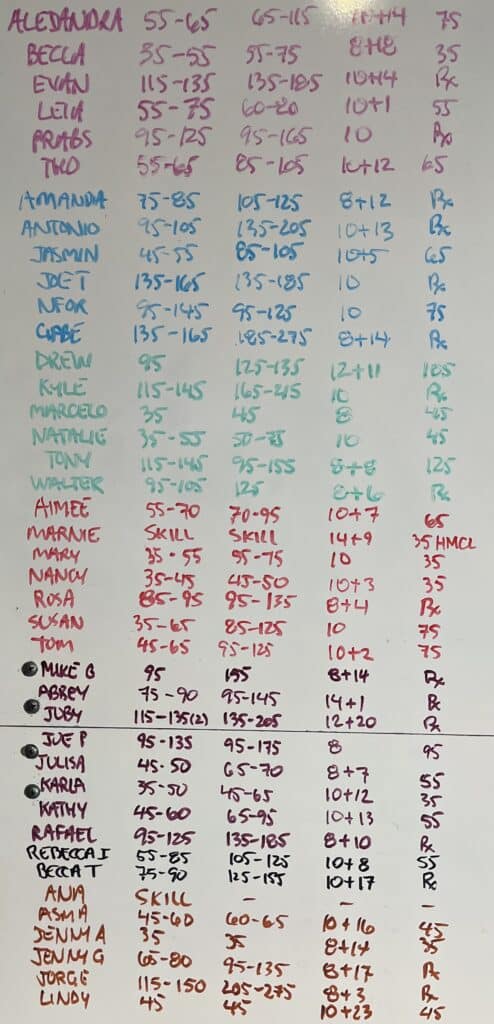 ALEJANDRA 55-65 65-115 10+14 75
BECCA 35-55 55-75 8+18 35
EVAN 115-135 135-185 10+14 Rx
LEIA 55-75 60-80 10+1 55
PRABS 95-125 95-165 10 Rx
TKO 55-65 85-105 10+12 65
AMANDA 75-85 105-125 8+12 Rx
ANTONIO 95-105 135-205 10+13 Rx
JASMIN 45-55 85-105 10+5 65
JOE T 135-165 135-185 10 Rx
NFOR 95-145 95-125 10 75
GABE 135-165 185-275 8+14 Rx
DREW 95 125-135 12+11 105
KYLE 115-145 165-215 10 Rx
MARCELO 35 45 8 45
NATALIE 35-55 50-75 10 45
TONY 115-145 95-155 8+8 125
WALTER 95-105 125 8+6 Rx
AIMEE 55-70 70-95 10+7 65
MARNIE SKILL SKILL 14+9 35 HMCL
MARY 35-55 55-75 10 35
NANCY 35-45 45-50 10+3 35
ROSA 85-95 95-135 8+4 Rx
SUSAN 35-65 85-125 10 75
TOM 45-65 95-125 10+2 75
MIKE G 95 155 8+14 Rx
ABBEY 75-90 95-145 14+1 Rx
JUBY 115-135(2) 135-205 12+20 Rx
JOE P 95-135 95-175 8 95
JULISA 45-50 65-70 8+7 55
KARLA 35-50 45-65 10+12 35
KATHY 45-60 65-95 10+13 55
RAFAEL 95-125 135-185 8+10 Rx
REBECCA I 55-85 105-125 10+8 55
BECCA T 75-90 125-155 10+17 Rx
ANIA SKILL - - -
ASMA 45-60 60-65 10+16 45
JENNY A 35 35 8+14 35
JENNY G 65-80 95-135 8+17 Rx
JORGE 115-150 205-275 8+3 Rx
LINDY 45 45 10+23 45